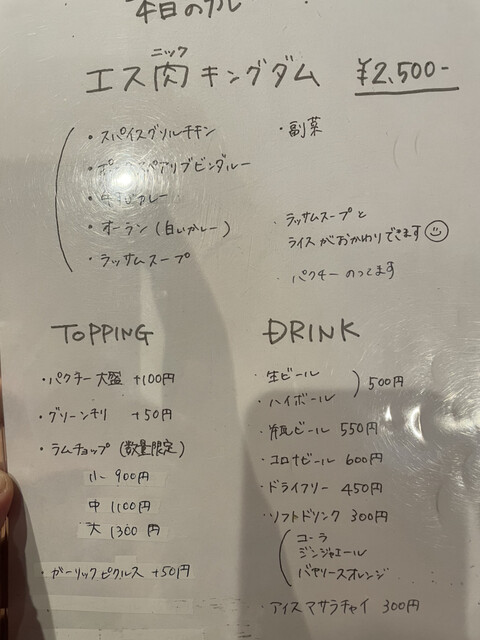 本日のカレー
ニック
エス肉キングダム ¥2,500-
・スパイスグリルチキン
・ポークスペアリブビンダルー
カレー
・オーラン(白いカレー)
・ラッサムスープ
・副菜
・ラッサムスープと
ライスがおかわりできます
・パクチーのってます
TOPPING
・パクチー大盛 +100円
・グリーンチリ +50円
・ラムチョップ(数量限定)
小 900円
中 1100円
大 1300円
・ガーリックピクルス +50円
DRINK
・生ビール
・ハイボール
500円
・瓶ビール 550円
・コロナビール 600円
・ドライフリー 450円
・ソフトドリンク 300円
コーラ
ジンジャエール
バヤリースオレンジ
・アイスマサラチャイ 300円